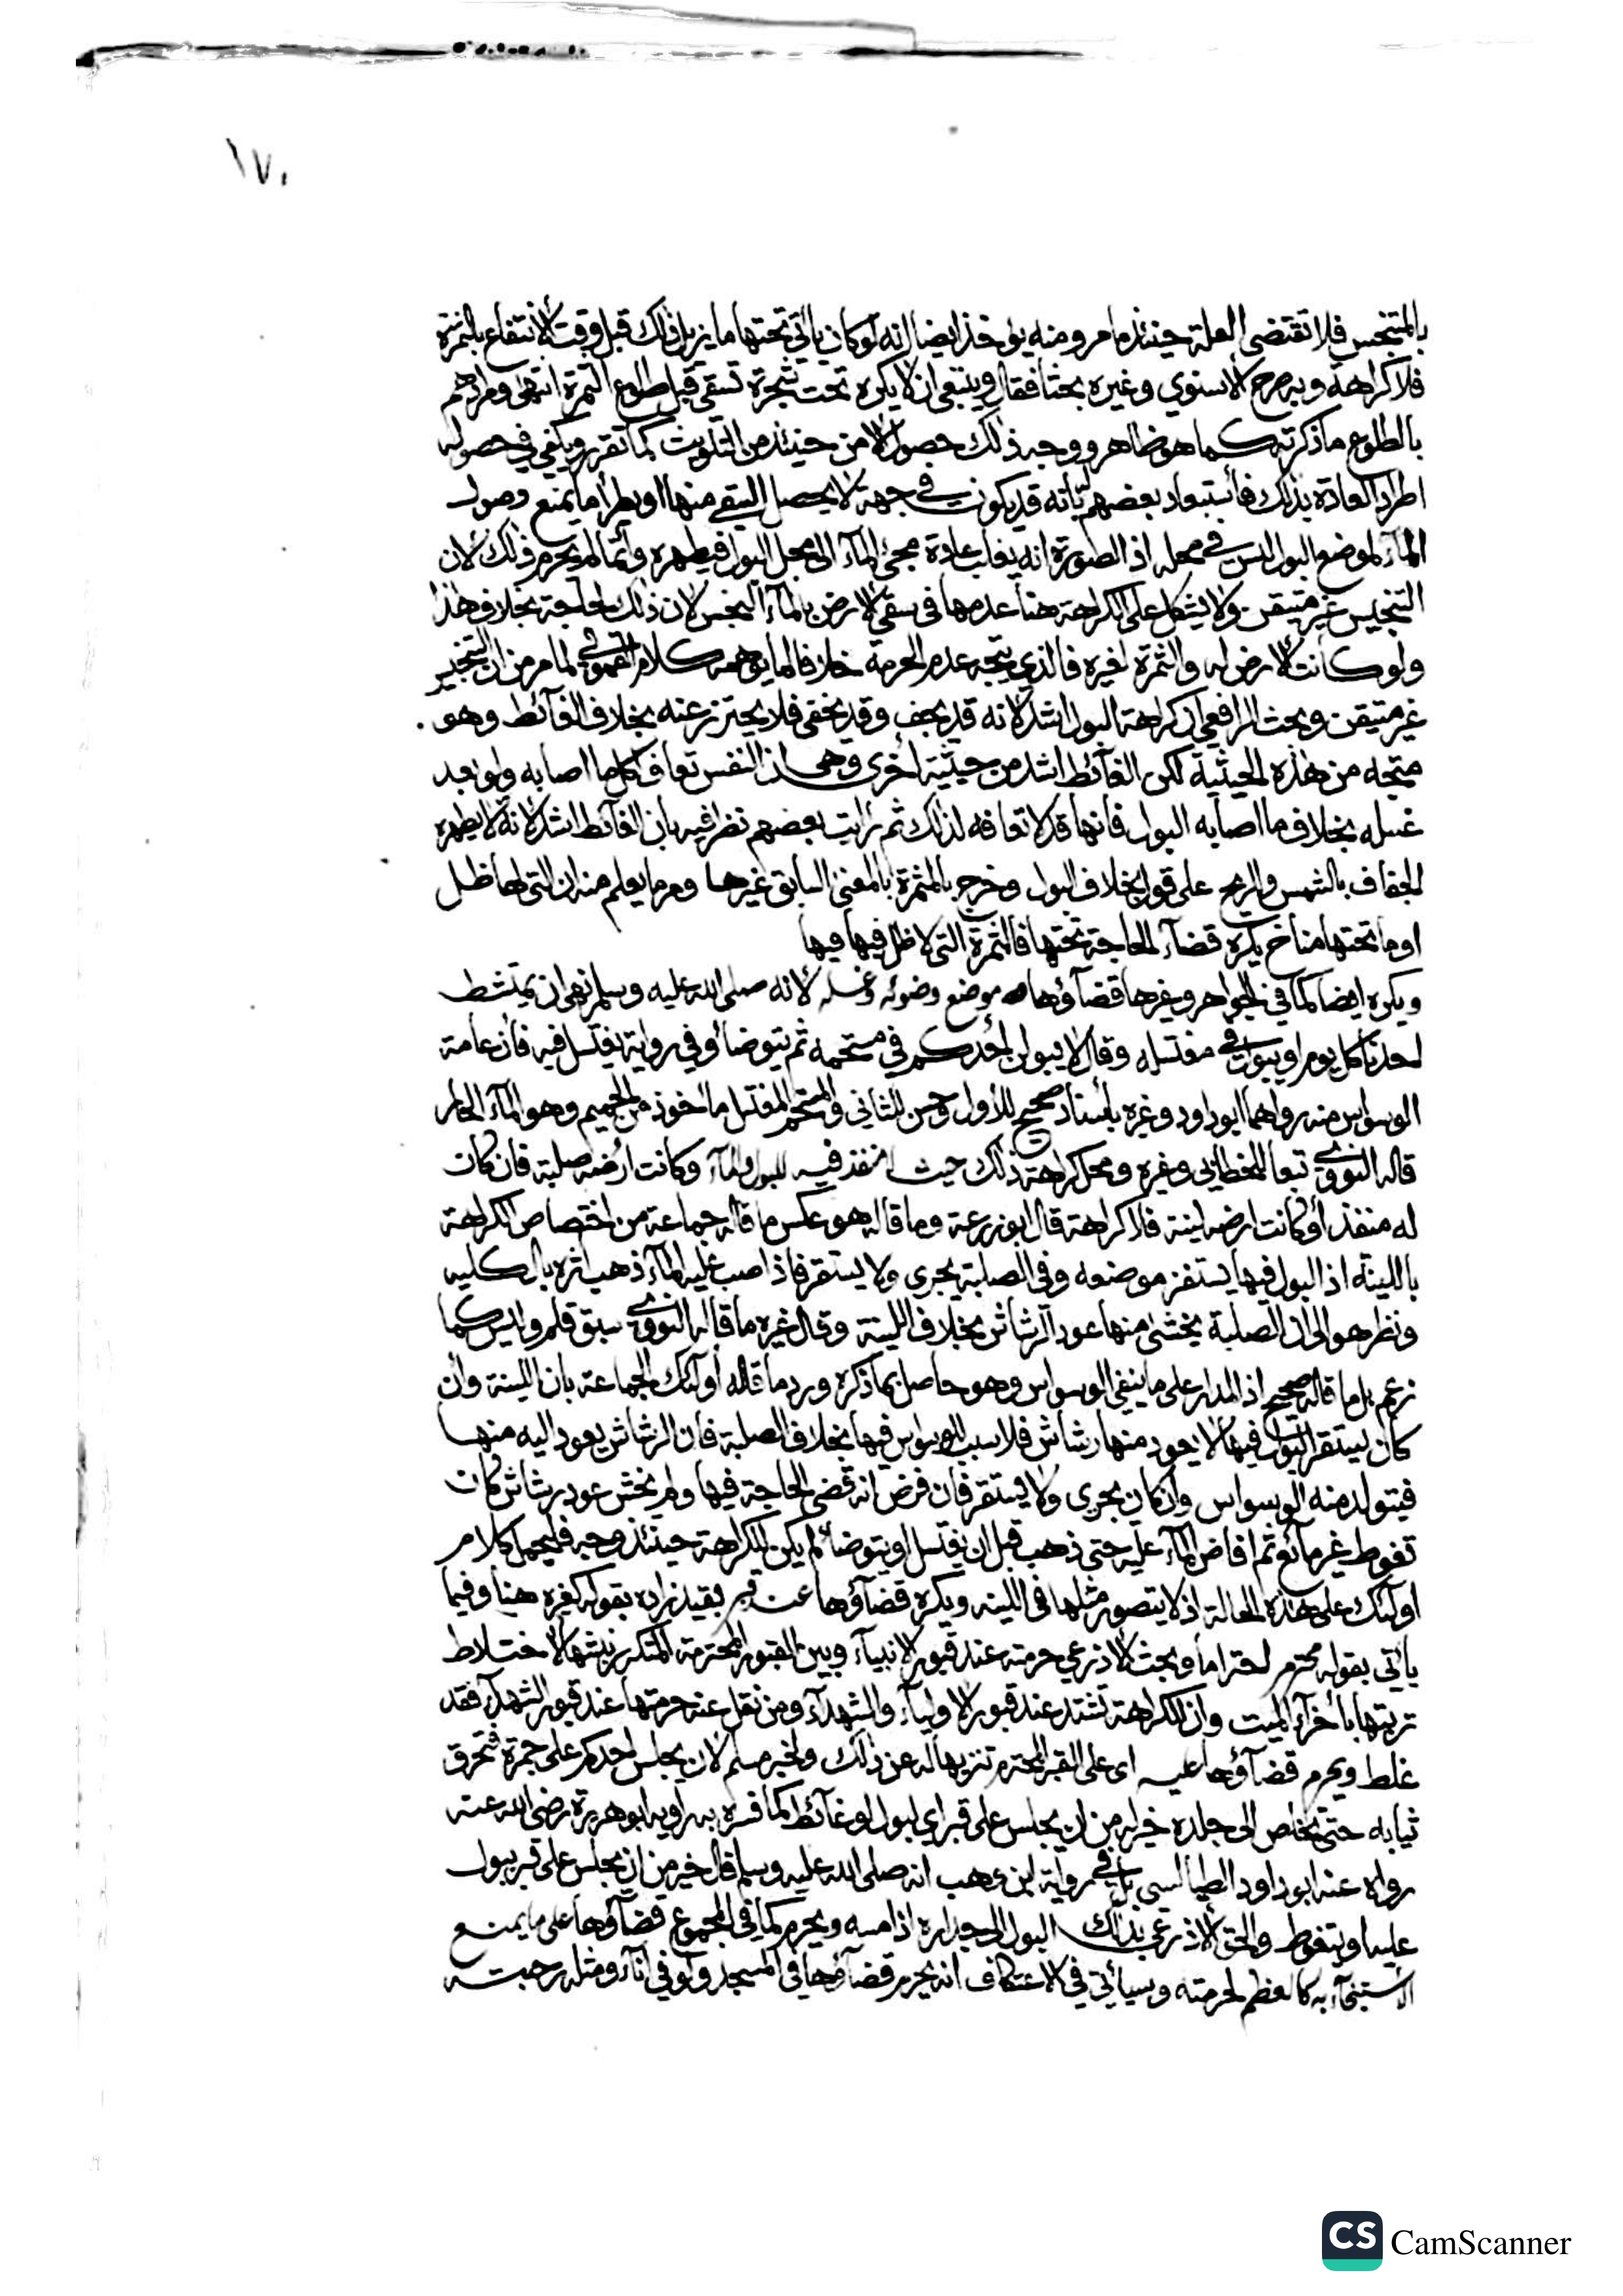 ١٧٠
بالمتنجس فلا تقتضى العلة حينئذ ما مر ومنه يؤخذ ايضا انه لو كان يأتي تحتها ما يزيل ذلك قبل وقت الانتفاع بالثمرة
فلا كراهة وبه صرح الاسنوي وغيره بحثا فقال وينبغي ان لا يكره تحت شجرة تسقى قبل طلوع الثمرة انتهى ومرادهم
بالطلوع ما ذكرته كما هو ظاهر ووجه ذلك حصول الامن حينئذ من التلويث كما تقرر ويكفي في حصوله
اطراد العادة بذلك فاستبعاد بعضهم بانه قد يكون في جهة لا يحصل السقي منها او يطرأ ما يمنع وصول
المآء لموضع البول ليس في محله اذ الصورة انه يغلب عادة مجئ المآء الى محل البول فيطهره وانما لم يحرم ذلك لان
التنجيس غير متيقن ولا يشكل على الكراهة هنا عدمها في سقي الارض بالمآء النجس لان ذلك لحاجة بخلاف هذا
ولو كانت الارض له والثمرة لغيره فالذي يتجه عدم الحرمة خلافا لما يوهمه كلام القمولي لما مر من ان التنجيس
غير متيقن وبحث الرافعي ان كراهة البول اشد لانه قد يجف وقد يخفى فلا يحترز عنه بخلاف الغآئط وهو
متجه من هذه الحيثية لكن الغآئط اشد من حيثية اخرى وهى ان النفس تعاف اكل ما اصابه ولو بعد
غسله بخلاف ما اصابه البول فانها قد لا تعافه لذلك ثم رايت بعضهم نظر فيه بان الغآئط اشد لانه لا يطهره
الجفاف بالشمس والريح على قول بخلاف البول وخرج بالمثمرة بالمعنى السابق غيرها ومر ما يعلم منه ان التى لها ظل
او ما تحتها مناخ يكره قضآء الحاجة تحتها فالثمرة التى لا ظل فيها فيها
ويكره ايضا كما في الجواهر وغيرها قضآؤها موضع وضوئه وغسله لانه صلى الله عليه وسلم نهى ان يمتشط
احدنا كل يوم او يبول في مغتسله وقال لا يبولن احدكم في مستحمه ثم يتوضأ وفي رواية يغتسل فيه فان عامة
الوسواس منه رواهما ابو داود وغيره باسناد صحيح للاول وحسن للثاني والمستحم المغتسل ماخوذ من الحميم وهو المآء الحار
قاله النووي تبعا للخطابي وغيره ومحل كراهة ذلك حيث لا منفذ فيه للبول والمآء وكانت ارضه صلبة فان كان
له منفذ او كانت ارضه لينة فلا كراهة قال ابو زرعة وما قاله هو عكس ما قاله جماعة من اختصاص الكراهة
باللينة اذ البول فيها يستقر موضعه وفى الصلبة يجرى ولا يستقر فاذا صب عليه المآء ذهب اثره بالكليه
ونظر هو الى ان الصلبة يخشى منها عود الرشاش بخلاف اللينة وقال غيره ما قاله النووي سبق قلم وليس كما
زعم بل ما قاله صحيح اذ المدار على ما ينفي الوسواس وهو حاصل بما ذكره ورد ما قاله اولئك الجماعة بان اللينة وان
كان يستقر البول فيها لا يعود منها رشاش فلا سبب للوسواس فيها بخلاف الصلبة فان الرشاش يعود اليه منها
فيتولد منه الوسواس وان كان يجرى ولا يستقر فان فرض انه قضى الحاجة فيها ولم يخش عود رشاش كان
تغوط غير مائع ثم افاض المآء عليه حتى ذهب قبل ان يغتسل او يتوضأ لم يكن للكراهة حينئذ وجه فليحمل كلام
اولئك على هذه الحالة اذ لا يتصور مثلها فى اللينه ويكره قضآؤها عند قبر بقيد زاده بقوله كغيره هنا وفيما
يأتي بقوله محترم احتراما وبحث الاذرعي حرمته عند قبور الانبيآء وبين القبور المحترمة المتكرر نبشها لاختلاط
تربتها بأجزآء الميت وان الكراهة تشتد عند قبور الاوليآء والشهدآء ومن نقل عنه حرمتها عند قبور الشهدآء فقد
غلط ويحرم قضآؤها عليه اى على القبر المحترم تنزيها له عن ذلك ولخبر مسلم لان يجلس احدكم على جمرة فتحرق
ثيابه حتى تخلص الى جلده خير له من ان يجلس على قبر اي لبول او غآئط كما فسره به راويه ابو هريرة رضى الله عنه
رواه عنه ابو داود الطيالسى بل في رواية لابن وهب انه صلى الله عليه وسلم قال خير من ان يجلس على قبر يبول
عليه او يتغوط والحق الاذرعي بذلك البول الى جداره اذا مسه ويحرم كما في المجموع قضآؤها على ما يمتنع
الاستنجآء به كالعظم لحرمته وسيأتي في الاعتكاف انه يحرم قضآؤها فى المسجد ولو في انآء ومثله رحبته
CS CamScanner